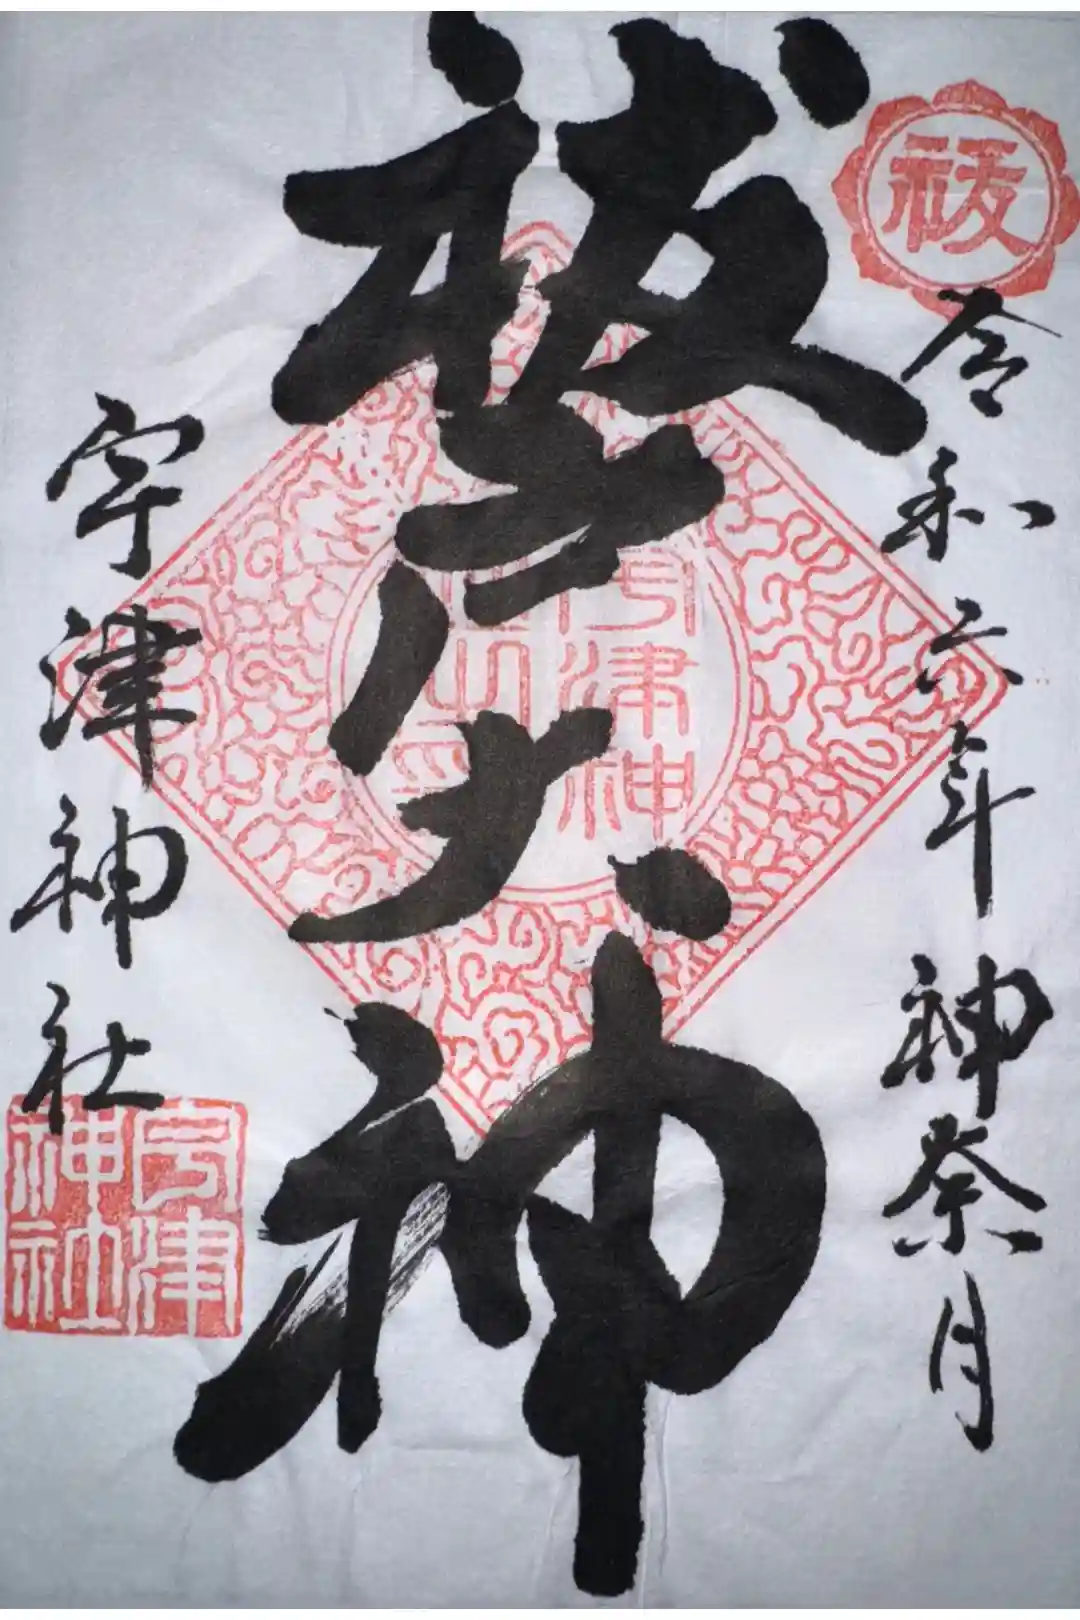 祓
令和六年神奈月
祓戸大神
宇津神
宇津神社
宇津
神社